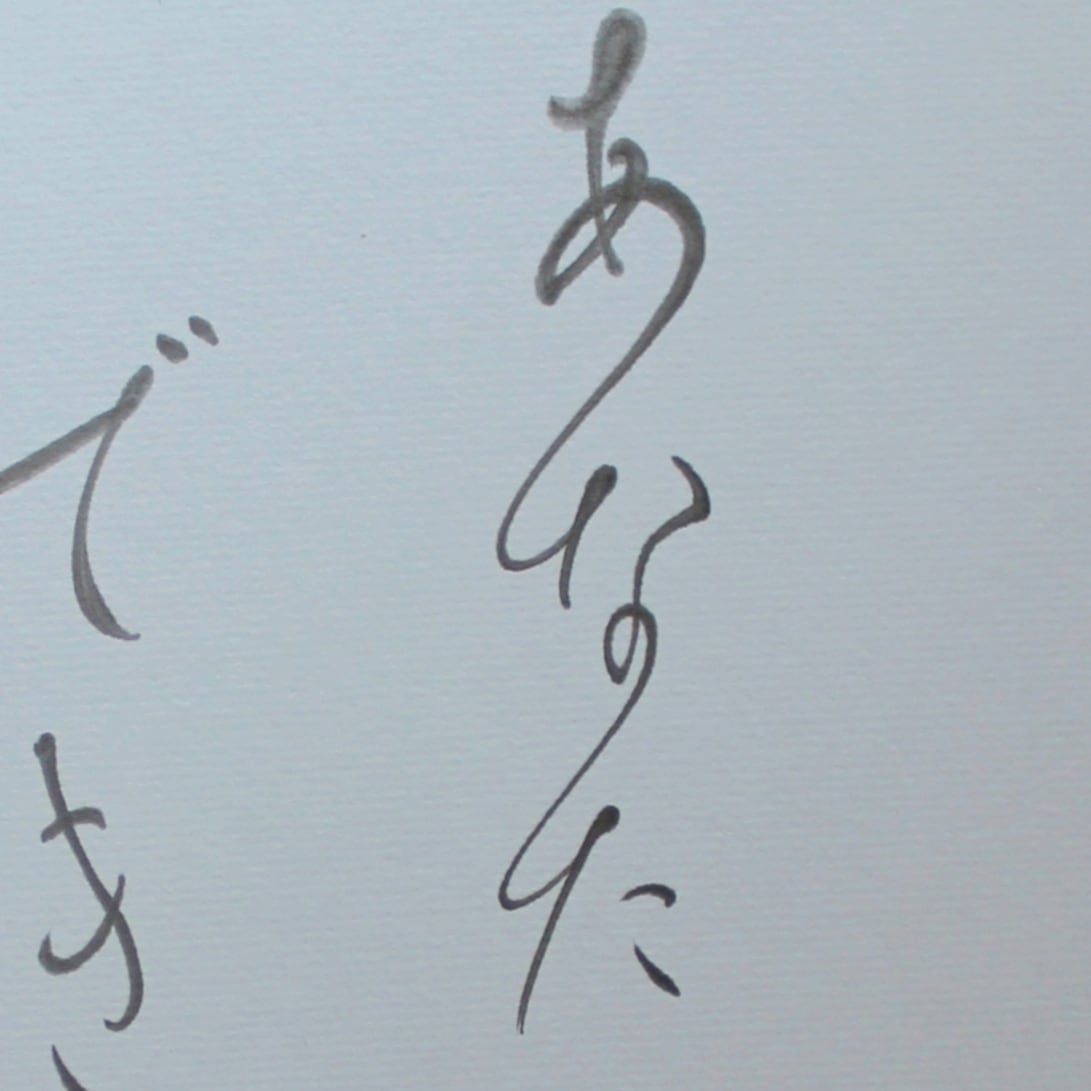 あなた
でき